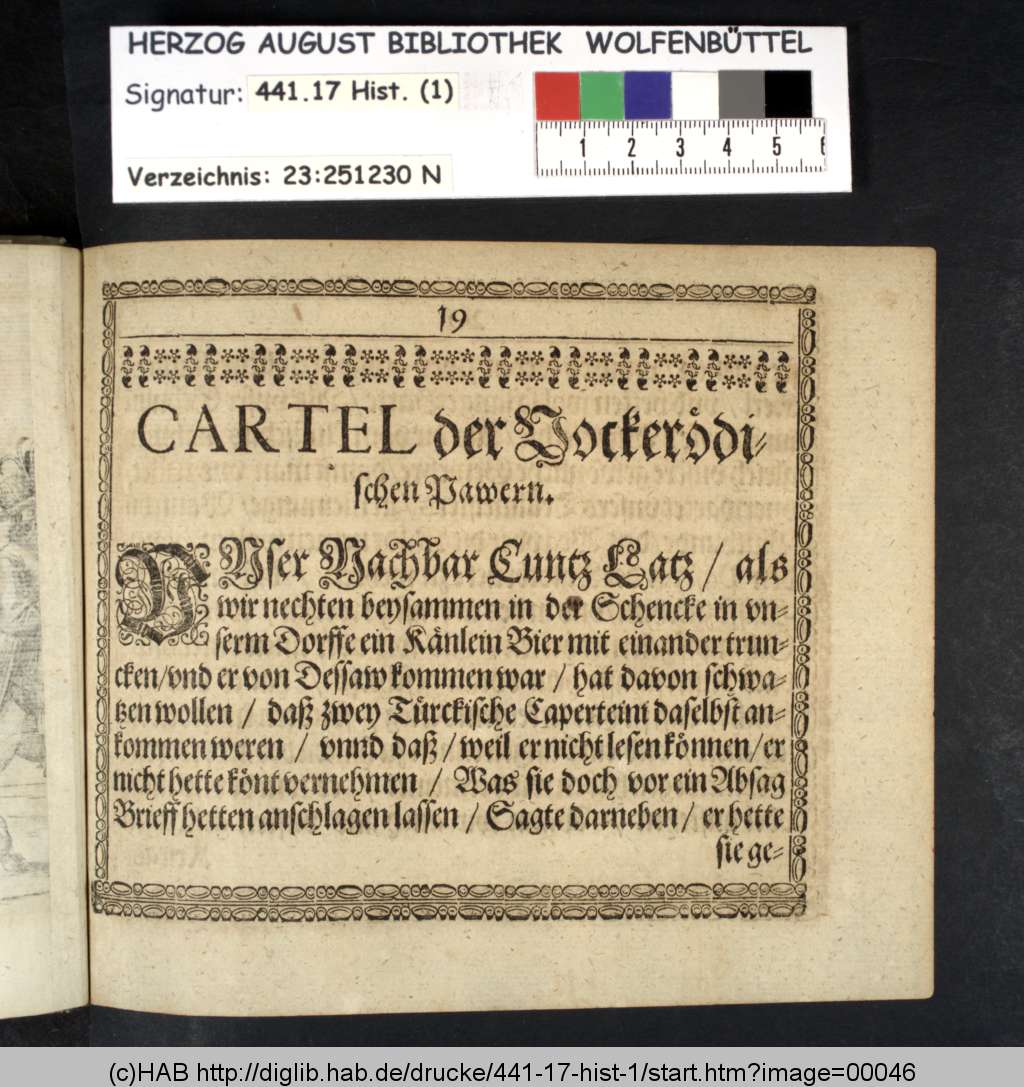 HERZOG AUGUST BIBLIOTHEK WOLFENBÜTTEL
Signatur: 441.17 Hist. (1)
1 2 3 4 5 6
Verzeichnis: 23:251230 N
19
CARTEL der Vockerödi-
schen Pawern.
VNser Nachbar Cuntz Latz / als
wir nechten beysammen in der Schencke in vn-
serm Dorffe ein Känlein Bier mit einander trun-
cken/vnd er von Dessaw kommen war / hat davon schwa-
tzen wollen / daß zwey Türckische Caperteint daselbst an-
kommen weren / vnnd daß / weil er nicht lesen können/er
nicht hette könt vernehmen / Was sie doch vor ein Absag
Brieff hetten anschlagen lassen / Sagte darneben / er hette
sie ge-
(c)HAB http://diglib.hab.de/drucke/441-17-hist-1/start.htm?image=00046